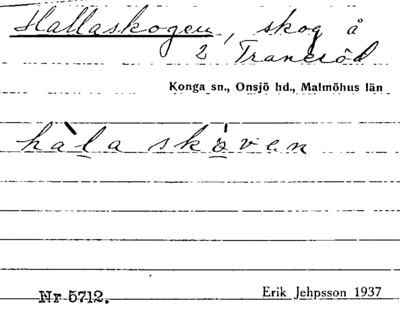 Hallaskogen, skog å
2 Tranesöd
Konga sn., Onsjö hd., Malmöhus län
hàla skóven
Nr 5712. Erik Jehpsson 1937